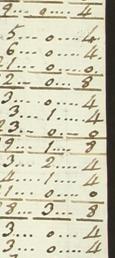 9...0...4
5...0...4
6...0...4
21...0...0
2...0...8
3...0...4
3...1...4
23...0...0
9...1...8
3...2...4
4...1...4
21...0...0
8...3...8
3...0...4
3...0...4